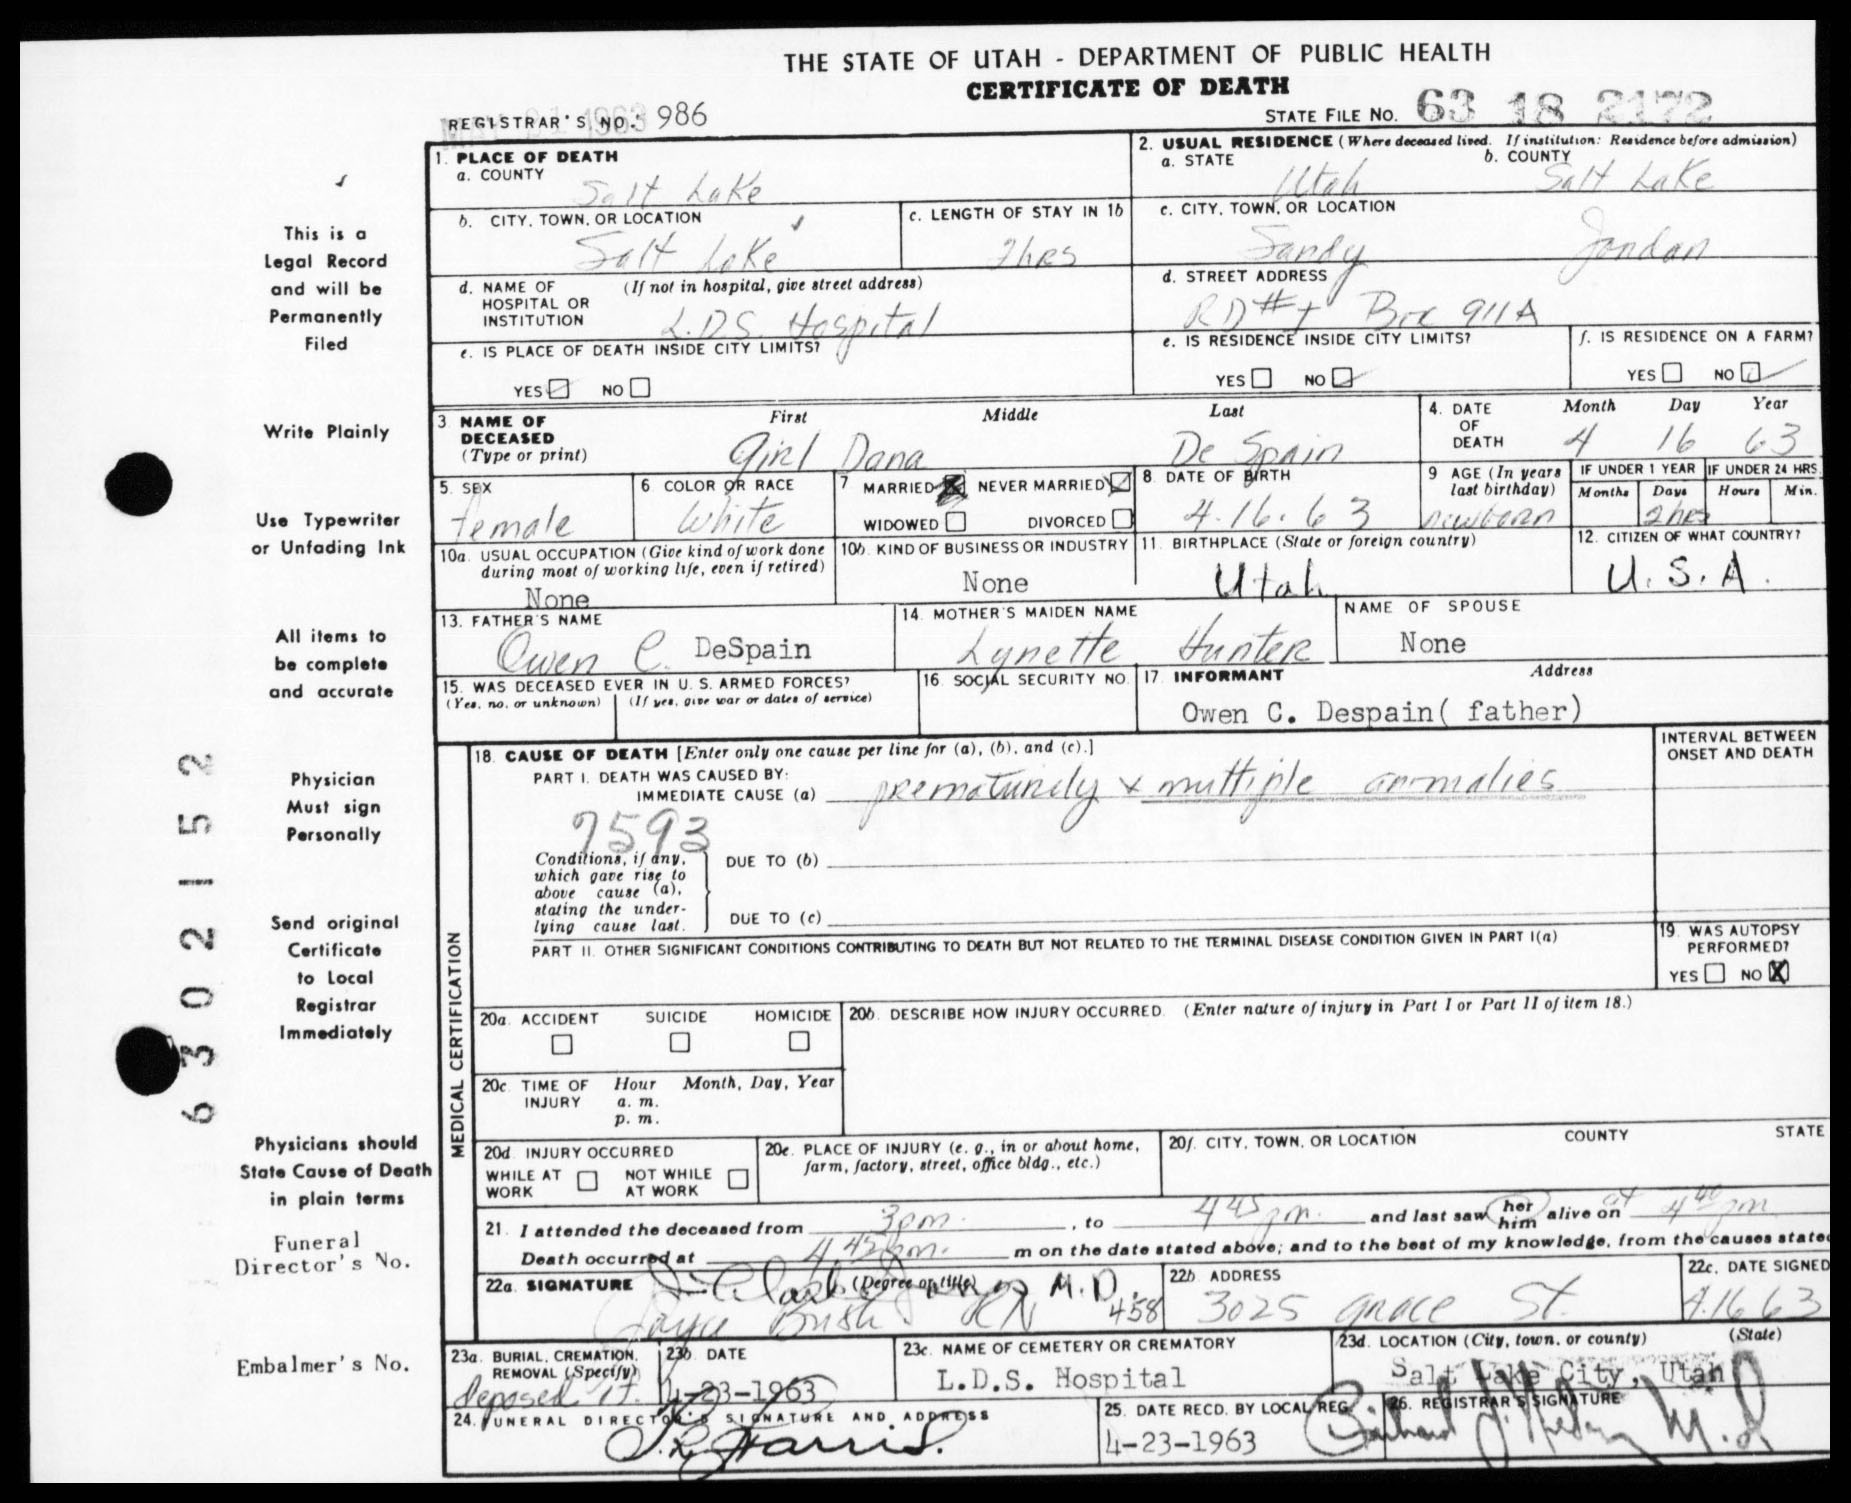 THE STATE OF UTAH - DEPARTMENT OF PUBLIC HEALTH
CERTIFICATE OF DEATH
REGISTRAR'S NO. 986
STATE FILE NO. 63 18 2172
1. PLACE OF DEATH
a. COUNTY
Salt Lake
2. USUAL RESIDENCE (Where deceased lived. If institution: Residence before admission)
a. STATE b. COUNTY
Utah Salt Lake
b. CITY, TOWN, OR LOCATION
Salt Lake
c. LENGTH OF STAY IN 1b
2hrs
c. CITY, TOWN, OR LOCATION
Sandy Jordan
d. NAME OF (If not in hospital, give street address)
HOSPITAL OR
INSTITUTION L.D.S. Hospital
d. STREET ADDRESS
RD#1 Box 911A
e. IS PLACE OF DEATH INSIDE CITY LIMITS?
YES NO
e. IS RESIDENCE INSIDE CITY LIMITS?
YES NO
f. IS RESIDENCE ON A FARM?
YES NO
3. NAME OF First Middle Last
DECEASED
(Type or print) Girl Dana De Spain
4. DATE Month Day Year
OF
DEATH 4 16 63
5. SEX
female
6. COLOR OR RACE
White
7. MARRIED NEVER MARRIED
WIDOWED DIVORCED
8. DATE OF BIRTH
4.16.63
9. AGE (In years
last birthday)
newborn
IF UNDER 1 YEAR IF UNDER 24 HRS.
Months Days Hours Min.
2hrs
10a. USUAL OCCUPATION (Give kind of work done
during most of working life, even if retired)
None
10b. KIND OF BUSINESS OR INDUSTRY
None
11. BIRTHPLACE (State or foreign country)
Utah
12. CITIZEN OF WHAT COUNTRY?
U.S.A.
13. FATHER'S NAME
Owen C. DeSpain
14. MOTHER'S MAIDEN NAME
Lynette Hunter
NAME OF SPOUSE
None
15. WAS DECEASED EVER IN U. S. ARMED FORCES?
(Yes, no, or unknown) (If yes, give war or dates of service)
16. SOCIAL SECURITY NO.
17. INFORMANT Address
Owen C. Despain( father)
MEDICAL CERTIFICATION
18. CAUSE OF DEATH [Enter only one cause per line for (a), (b), and (c).]
PART I. DEATH WAS CAUSED BY:
IMMEDIATE CAUSE (a) prematurity & multiple anomalies
7593
Conditions, if any,
which gave rise to
above cause (a),
stating the under-
lying cause last.
DUE TO (b)
DUE TO (c)
INTERVAL BETWEEN
ONSET AND DEATH
PART II. OTHER SIGNIFICANT CONDITIONS CONTRIBUTING TO DEATH BUT NOT RELATED TO THE TERMINAL DISEASE CONDITION GIVEN IN PART I(a)
19. WAS AUTOPSY
PERFORMED?
YES NO X
20a. ACCIDENT SUICIDE HOMICIDE
20b. DESCRIBE HOW INJURY OCCURRED. (Enter nature of injury in Part I or Part II of item 18.)
20c. TIME OF Hour Month, Day, Year
INJURY a. m.
p. m.
20d. INJURY OCCURRED
WHILE AT NOT WHILE
WORK AT WORK
20e. PLACE OF INJURY (e. g., in or about home,
farm, factory, street, office bldg., etc.)
20f. CITY, TOWN, OR LOCATION COUNTY STATE
21. I attended the deceased from 3pm. , to 4 45 pm. and last saw her him alive on at 4 40 pm
Death occurred at 4 45 pm. m on the date stated above; and to the best of my knowledge, from the causes state
22a. SIGNATURE (Degree or title) M.D.
Joyce Brush RN 458
22b. ADDRESS
3025 Grace St.
22c. DATE SIGNED
4.16 63
23a. BURIAL, CREMATION,
REMOVAL (Specify)
23b. DATE
4-23-1963
23c. NAME OF CEMETERY OR CREMATORY
L.D.S. Hospital
23d. LOCATION (City, town, or county) (State)
Salt Lake City, Utah
24. FUNERAL DIRECTOR'S SIGNATURE AND ADDRESS
Harris.
25. DATE RECD. BY LOCAL REG.
4-23-1963
26. REGISTRAR'S SIGNATURE
M.D
This is a
Legal Record
and will be
Permanently
Filed
Write Plainly
Use Typewriter
or Unfading Ink
All items to
be complete
and accurate
Physician
Must sign
Personally
Send original
Certificate
to Local
Registrar
Immediately
Physicians should
State Cause of Death
in plain terms
Funeral
Director's No.
Embalmer's No.
6302152